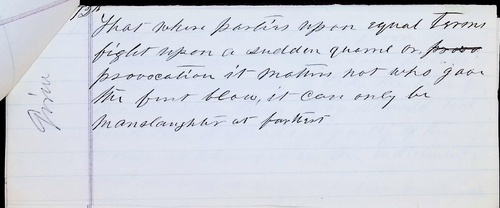 13th
That where parties upon equal terms
fight upon a sudden quarrel or provo
provocation it matters not who gave
the first blow, it can only be
manslaughter at farthest
Given